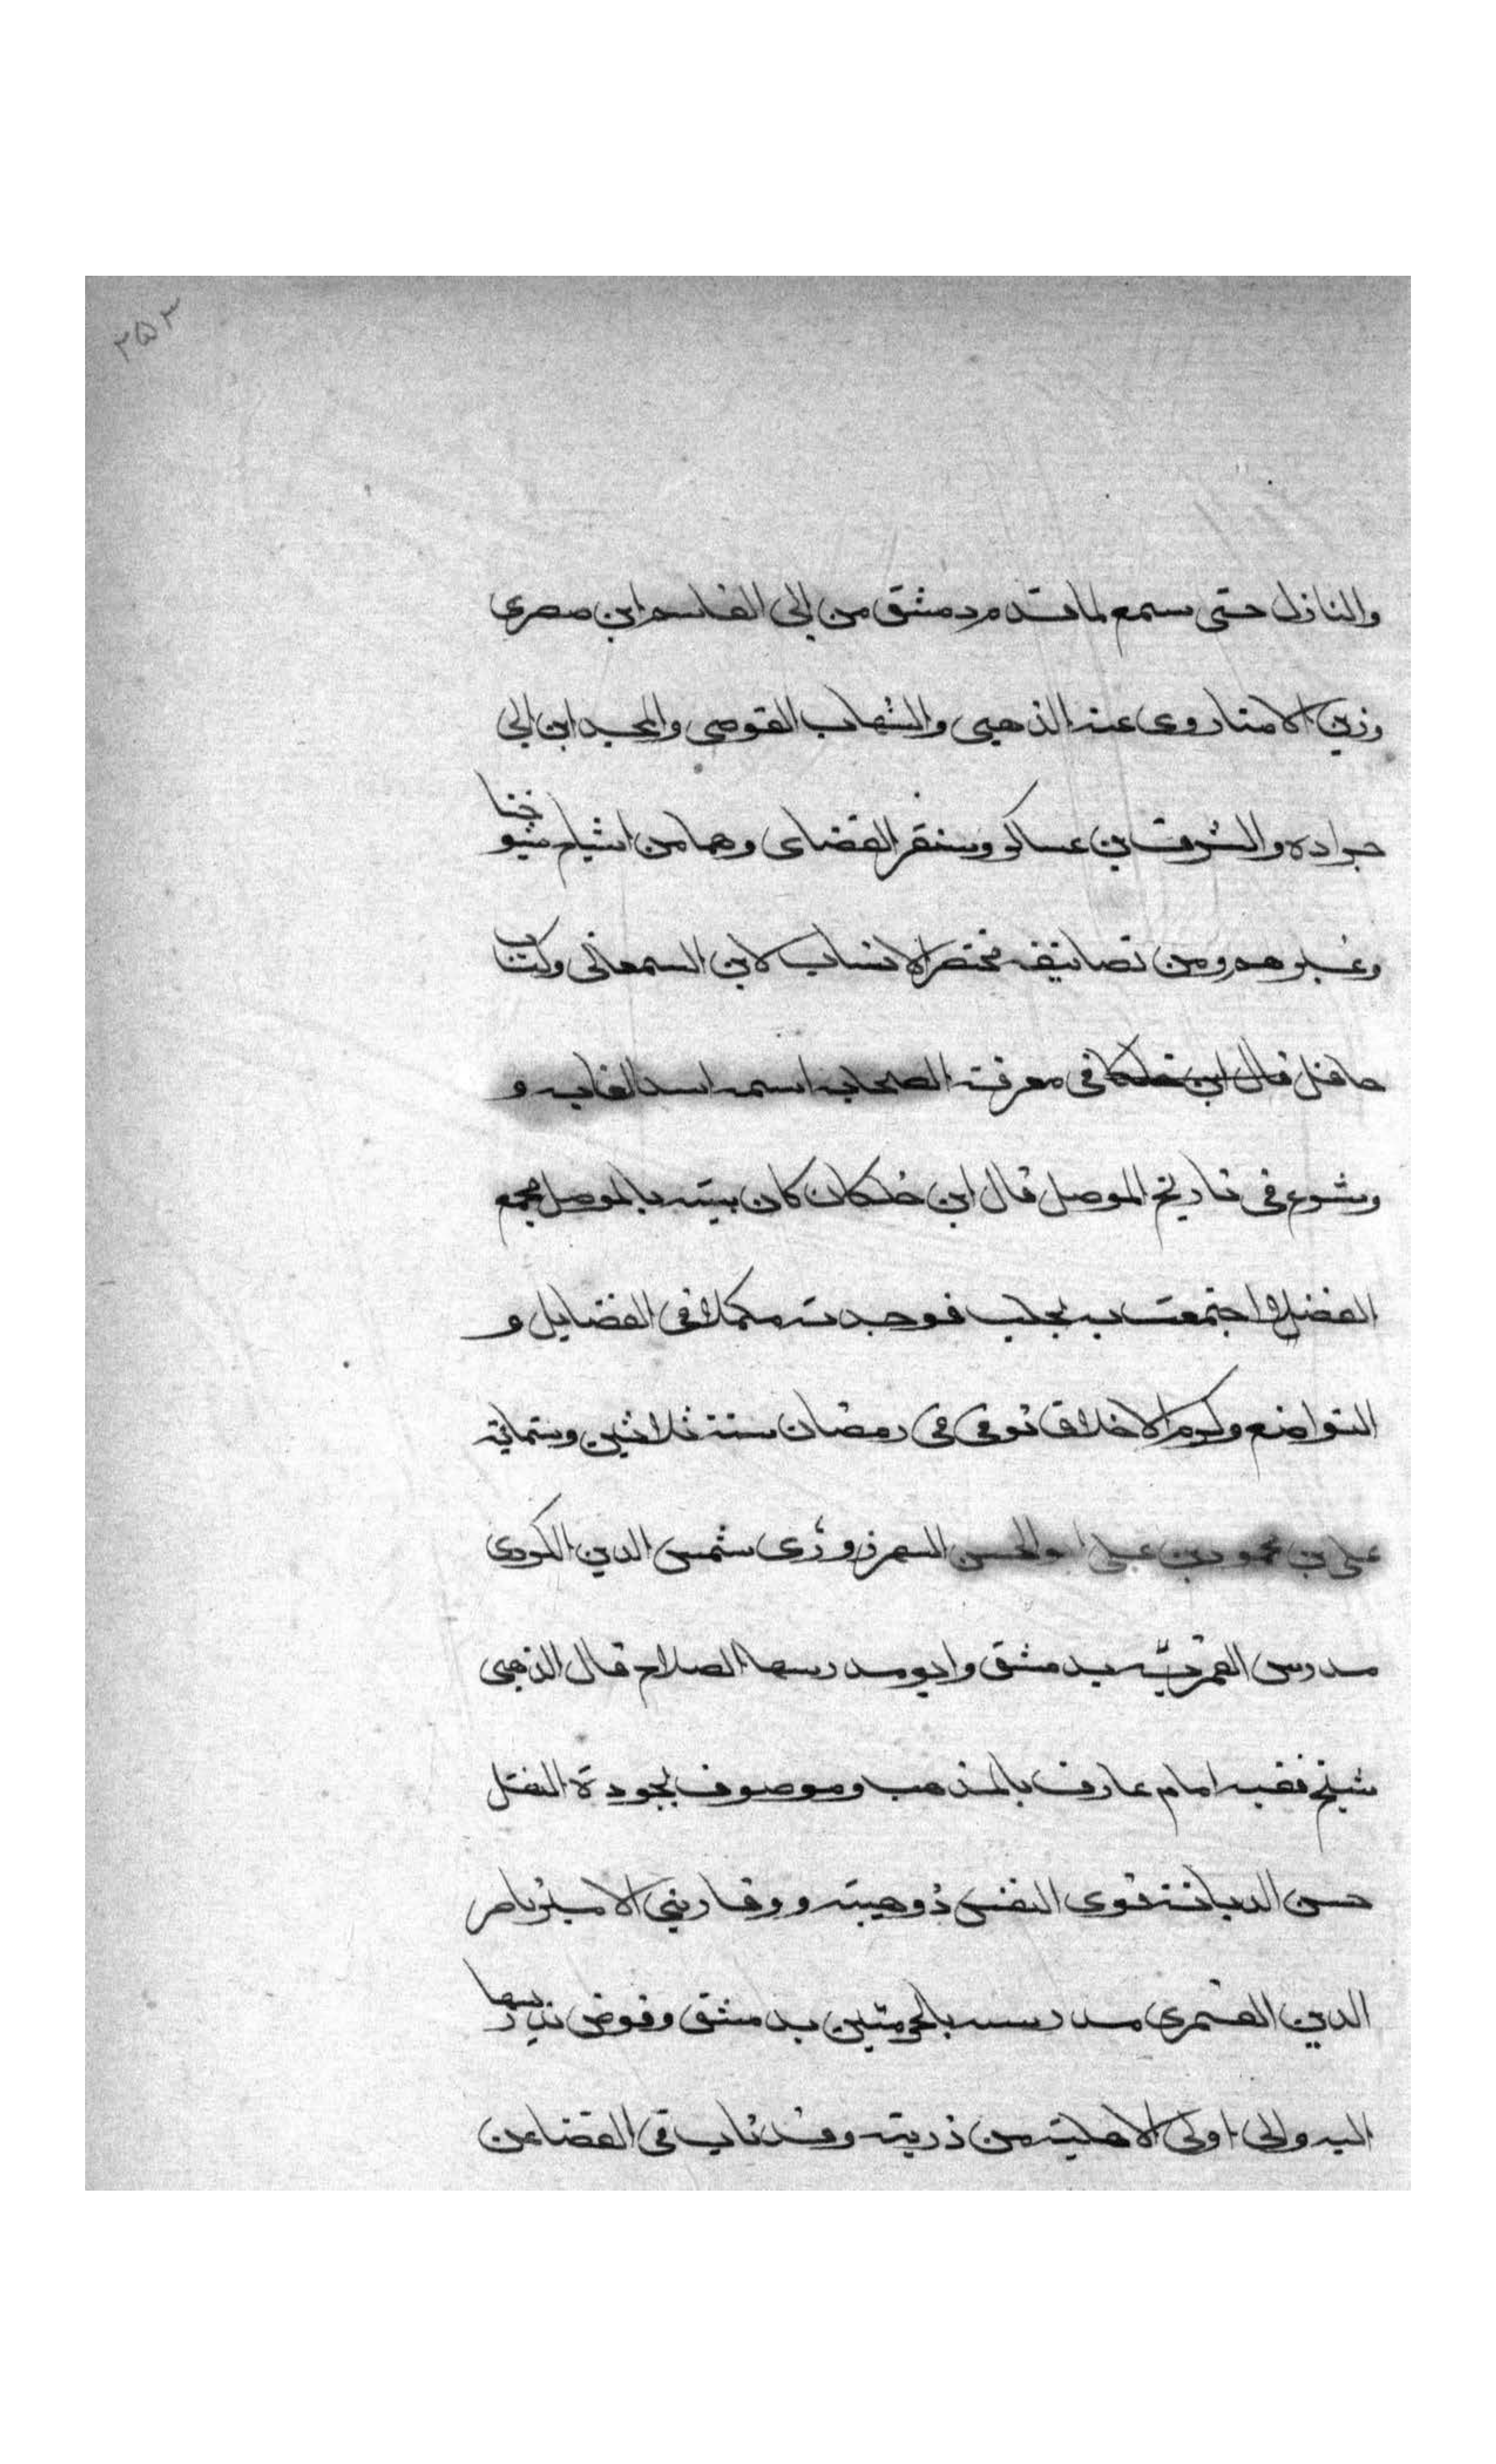 ٢٥٣
والنازل حتى سمع لما قدم دمشق من ابى القاسم ابن صصرى
وزين الامنا روى عنه الذهبى والشهاب القوصى والمجد ابن ابى
جراده والشرف بن عساكر وسنقر القضاى وهما من اشياخ شيوخنا
وغيرهم ومن تصانيفه مختصر الانساب لابن السمعانى وكتاب
حافل قال ابن خلكا فى معرفة الصحابه اسمه اسد الغابه و
وشرع فى تاريخ الموصل قال ابن خلكان كان بيته بالموصل مجمع
الفضلا اجتمعت به بحلب فوجدته مكملا فى الفضايل و
التواضع وكرم الاخلاق توفى فى رمضان سنة ثلاثين وستمائة
على بن محمود بن على ابو الحسن السهرزورى شمس الدين الكردى
مدرس القمريّه بدمشق وابو مدرسها الصلاح قال الذهبى
شيخ فقيه امام عارف بالمذهب وموصوف بجودة النقل
حسن الديانة قوى النفس ذو هيبة ووقار بنى الامير ناصر
الدين القمرى مدرسه بالحرمتين بدمشق وفوض تدريسها
اليه والى اولى الاهلية من ذريته وقد ناب فى القضا عن